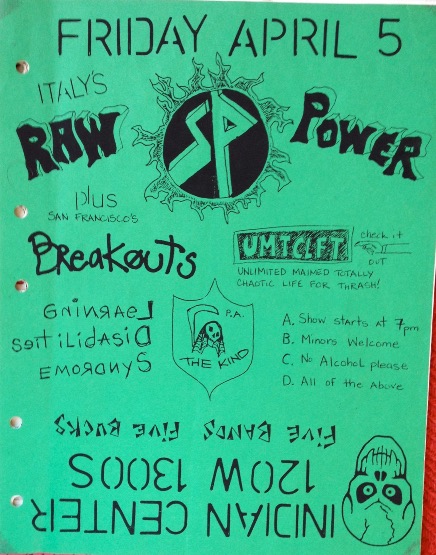 FRIDAY APRIL 5
ITALY'S
RAW SP POWER
plus
SAN FRANCISCO'S
Breakouts
UMTCLFT
check it
OUT
UNLIMITED MAIMED TOTALLY
CHAOTIC LIFE FOR THRASH!
LEARNING
DISAbiLiTies
SYNDROME
P.A.
THE KIND
A. Show starts at 7pm
B. Minors Welcome
C. No Alcohol please
D. All of the Above
INDIAN CENTER
120W 1300S
FiVE BANDS FiVE BUCKS